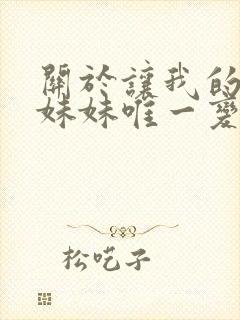 關於讓我的
妹妹唯一愛
松吃子